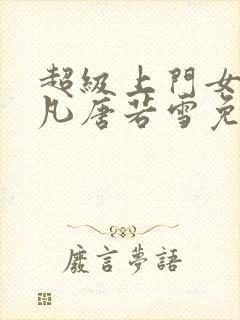 超級上門女
凡唐若雪免
廢言夢語